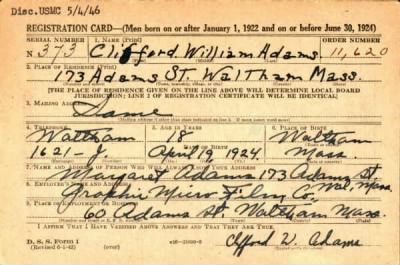 Disc.USMC 5/4/46
REGISTRATION CARD—(Men born on or after January 1, 1922 and on or before June 30, 1924)
SERIAL NUMBER 1. NAME (Print) ORDER NUMBER
N 373 Clifford William Adams 11,620
2. PLACE OF RESIDENCE (Print)
173 Adams ST. Waltham Mass.
[THE PLACE OF RESIDENCE GIVEN ON THE LINE ABOVE WILL DETERMINE LOCAL BOARD
JURISDICTION; LINE 2 OF REGISTRATION CERTIFICATE WILL BE IDENTICAL]
3. MAILING ADDRESS
Same
4. TELEPHONE 5. AGE IN YEARS 6. PLACE OF BIRTH
Waltham 18 Waltham
DATE OF BIRTH
1621-J April 9 1924. Mass.
7. NAME AND ADDRESS OF PERSON WHO WILL ALWAYS KNOW YOUR ADDRESS
Margaret Adams 173 Adams St
Wal, Mass.
8. EMPLOYER'S NAME AND ADDRESS
Graphic Micro Film Co.
9. PLACE OF EMPLOYMENT OR BUSINESS
60 Adams St. Waltham Mass.
I AFFIRM THAT I HAVE VERIFIED ABOVE ANSWERS AND THAT THEY ARE TRUE.
D. S. S. Form 1
(Revised 6-1-42)
Clifford W. Adams